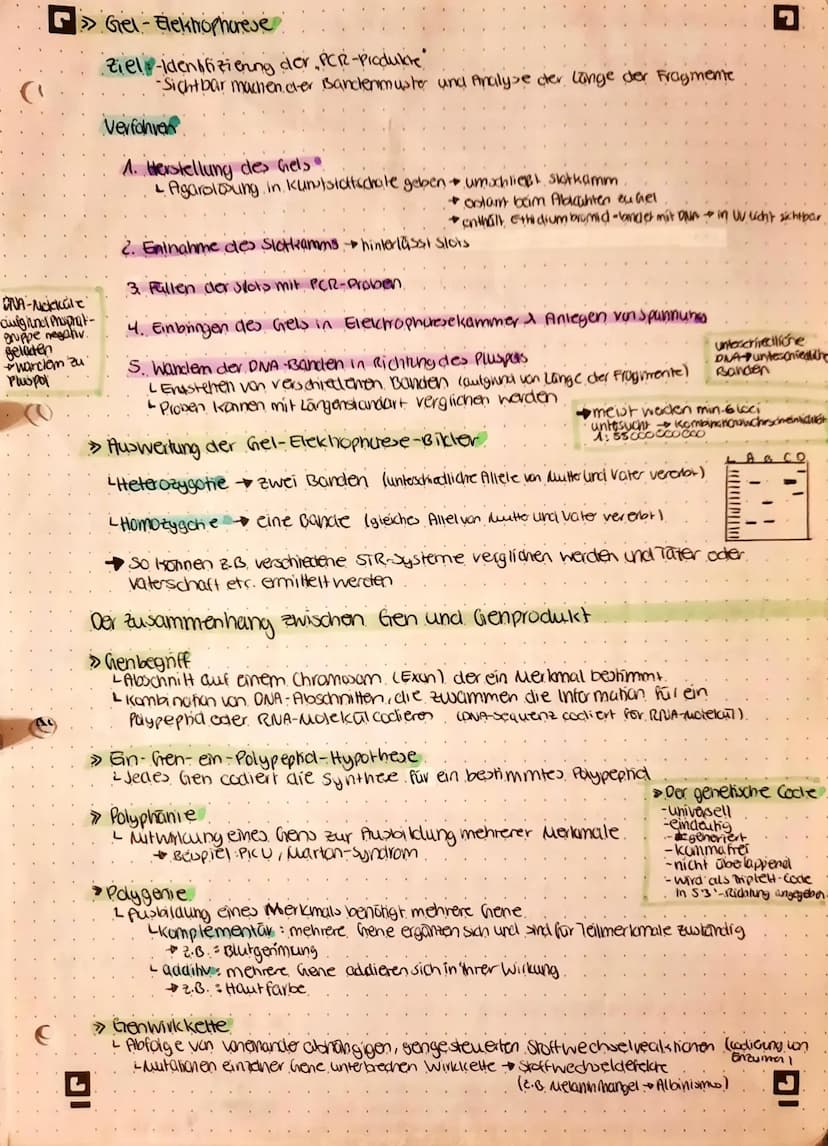 » Gel-Elektrophorese
Ziel: -Identifizierung der "PCR-Produkte"
-Sichtbar machen der Bandenmuster und Analyse der Länge der Fragmente
Verfahren
1. Herstellung des Gels
↳ Agaroselösung in Kunststoffschale geben → umschließt Slotkamm
→ erstarrt beim Abkühlen zu Gel
→ enthält Ethidiumbromid -bindet mit DNA → in UV Licht sichtbar
2. Entnahme des Slotkamms → hinterlässt Slots
3. Füllen der Slots mit PCR-Proben
4. Einbringen des Gels in Elektrophoresekammer & Anlegen von Spannung
5. Wandern der DNA-Banden in Richtung des Pluspols
↳ Entstehen von verschiedenen Banden (aufgrund von Länge der Fragmente)
↳ Proben können mit Längenstandart verglichen werden
DNA-Moleküle
aufgrund Phosphat-
gruppe negativ
geladen
→ wandern zu
Pluspol
unterschiedliche
DNA → unterschiedliche
Banden
→ meist werden min. 6 loci
untersucht → Kombinationswahrscheinlichkeit
1:
» Auswertung der Gel-Elektrophorese-Bilder
↳ Heterozygotie → zwei Banden (unterschiedliche Allele von Mutter und Vater vererbt)
↳ Homozygotie → eine Bande (gleiches Allel von Mutter und Vater vererbt)
L A B C D
→ So können z.B. verschiedene STR-Systeme verglichen werden und Täter oder
Vaterschaft etc. ermittelt werden
Der Zusammenhang zwischen Gen und Genprodukt
» Genbegriff
↳ Abschnitt auf einem Chromosom (Exon) der ein Merkmal bestimmt
↳ Kombination von DNA-Abschnitten, die zusammen die Information für ein
Polypeptid oder RNA-Molekül codieren (DNA-Sequenz codiert für RNA-Molekül)
» Ein-Gen-ein-Polypeptid-Hypothese
↳ Jedes Gen codiert die Synthese für ein bestimmtes Polypeptid
» Polyphänie
↳ Mitwirkung eines Gens zur Ausbildung mehrerer Merkmale
→ Beispiel: PKU, Marfan-Syndrom
» Der genetische Code
-universell
-eindeutig
-degeneriert
-kommafrei
-nicht überlappend
-wird als Triplett-Code
in 5'3'-Richtung angegeben
» Polygenie
↳ Ausbildung eines Merkmals benötigt mehrere Gene
↳ Komplementär: mehrere Gene ergänzen sich und sind für Teilmerkmale zuständig
→ z.B.: Blutgerinnung
↳ additiv: mehrere Gene addieren sich in ihrer Wirkung
→ z.B.: Hautfarbe
» Genwirkkette
↳ Abfolge von voneinander abhängigen, gengesteuerten Stoffwechselreaktionen (codierung von
Enzymen)
↳ Mutationen einzelner Gene unterbrechen Wirkkette → Stoffwechseldefekte
(z.B. Melaninmangel → Albinismus)